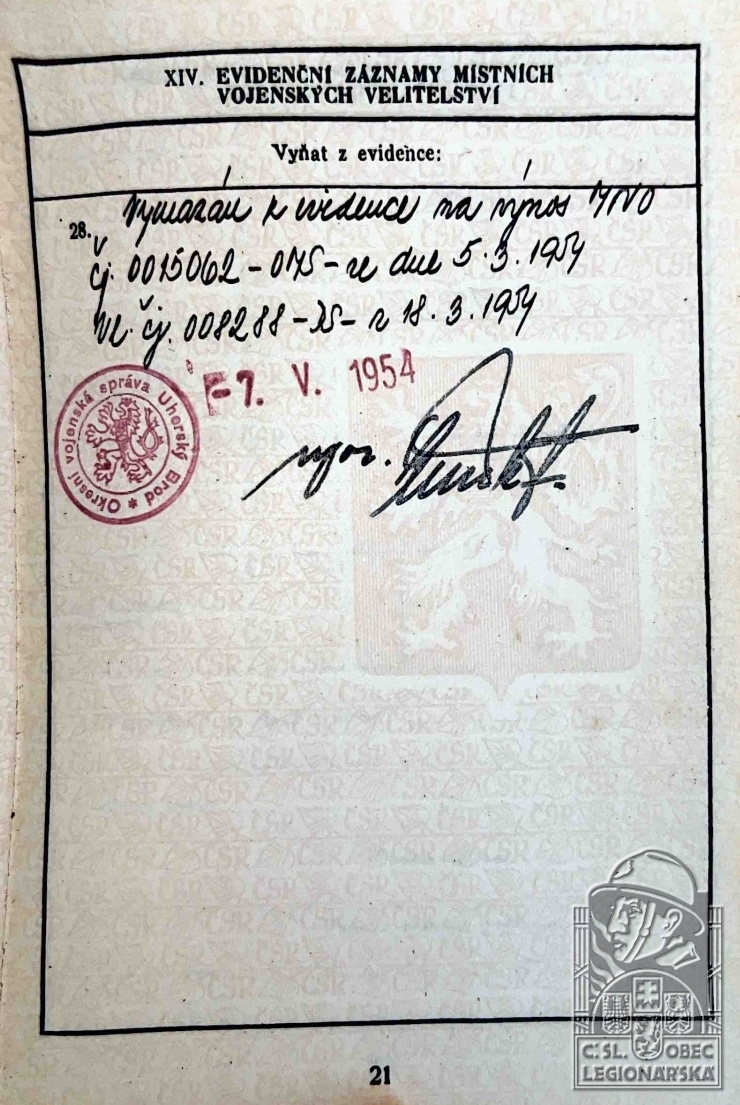 XIV. EVIDENČNÍ ZÁZNAMY MÍSTNÍCH
VOJENSKÝCH VELITELSTVÍ
Vyňat z evidence:
28. Vymazán z evidence na výnos MNO
čj. 0015062-075- ze dne 5.3.1954
čj. 008288- 18.3.1954
-7. V. 1954
Okresní vojenská správa Uherský Brod *
mjor.
21
Č. SL. OBEC
LEGIONÁŘSKÁ